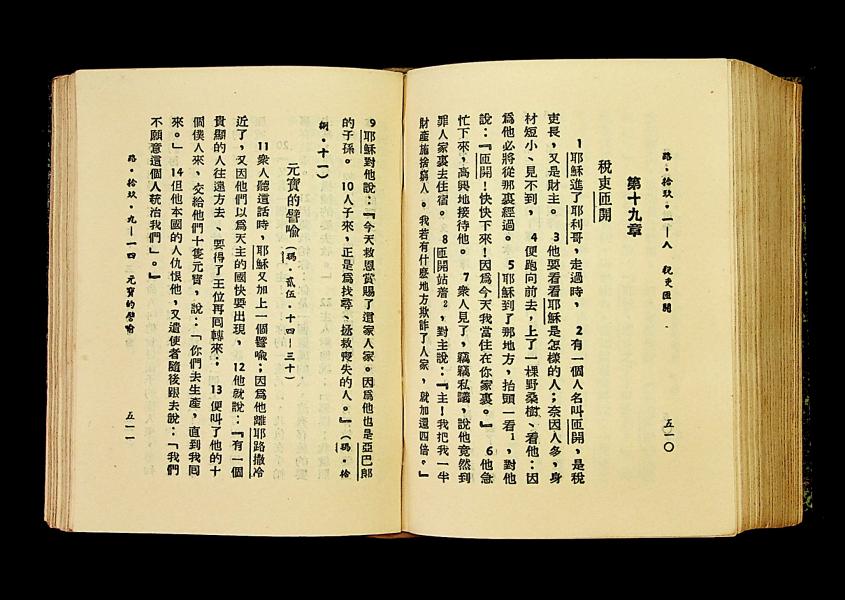 路・拾玖・一—八 稅吏匝開
第十九章
稅吏匝開
1耶穌進了耶利哥，走過時，2有一個人名叫匝開，是稅
吏長，又是財主。3他要看看耶穌是怎樣的人；奈因人多，身
材短小、見不到，4便跑向前去，上了一棵野桑樹、看他：因
爲他必將從那裏經過。5耶穌到了那地方，抬頭一看1，對他
說：『匝開！快快下來！因爲今天我當住在你家裏。』6他急
忙下來，高興地接待他。7衆人見了，竊竊私議，說他竟然到
罪人家裏去住宿。8匝開站着2，對主說：『主！我把我一半
財產施捨窮人。我若有什麼地方欺詐了人家，就加還四倍。』
五一〇
9耶穌對他說：『今天救恩賞賜了這家人家。因爲他也是亞巴郎
的子孫。10人子來，正是爲找尋、拯救喪失的人。』（瑪・拾
捌・十一）
元寶的譬喻（瑪・貳伍・十四—三十）
11衆人聽這話時，耶穌又加上一個譬喻；因爲他離耶路撒冷
近了，又因他們以爲天主的國快要出現，12他就說：『有一個
貴顯的人往遠方去、要得了王位再囘轉來；13便叫了他的十
個僕人來、交給他們十隻元寶，說：「你們去生產，直到我囘
來。」14但他本國的人仇恨他，又遣使者隨後跟去說：「我們
不願意這個人統治我們」。』
路・拾玖・九—一四 元寶的譬喻
五一一